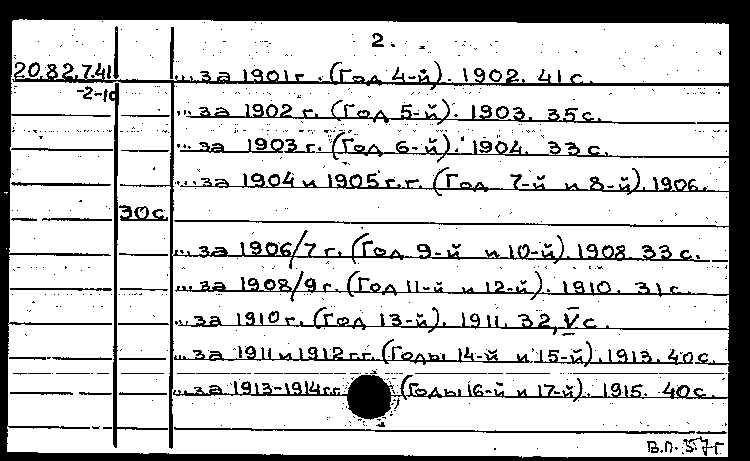 2.
20.82.7.41 ...за 1901 г. (Год 4-й). 1902. 41 с.
-2-10
...за 1902 г. (Год 5-й). 1903. 35 с.
...за 1903 г. (Год 6-й). 1904. 33 с.
...за 1904 и 1905 г.г. (Год 7-й и 8-й). 1906.
30 с.
...за 1906/7 г. (Год 9-й и 10-й). 1908. 33 с.
...за 1908/9 г. (Год 11-й и 12-й). 1910. 31 с.
...за 1910 г. (Год 13-й). 1911. 32, V с.
...за 1911 и 1912 г.г. (Годы 14-й и 15-й). 1913. 40 с.
...за 1913-1914 г.г. (Годы 16-й и 17-й). 1915. 40 с.
В.П. 57г